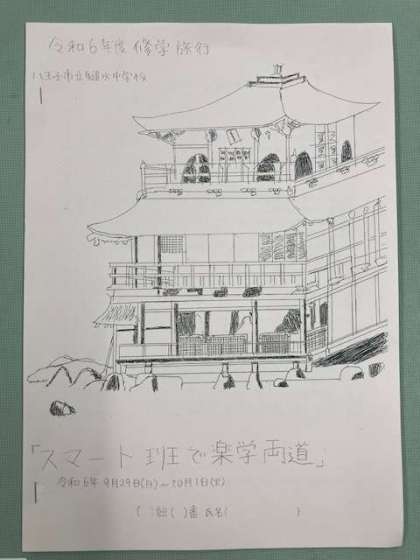 令和6年度 修学旅行
八王子市立鑓水中学校
「スマート班で楽学両道」
令和6年 9月29日(日)～10月1日(火)
( )組( )番 氏名( )